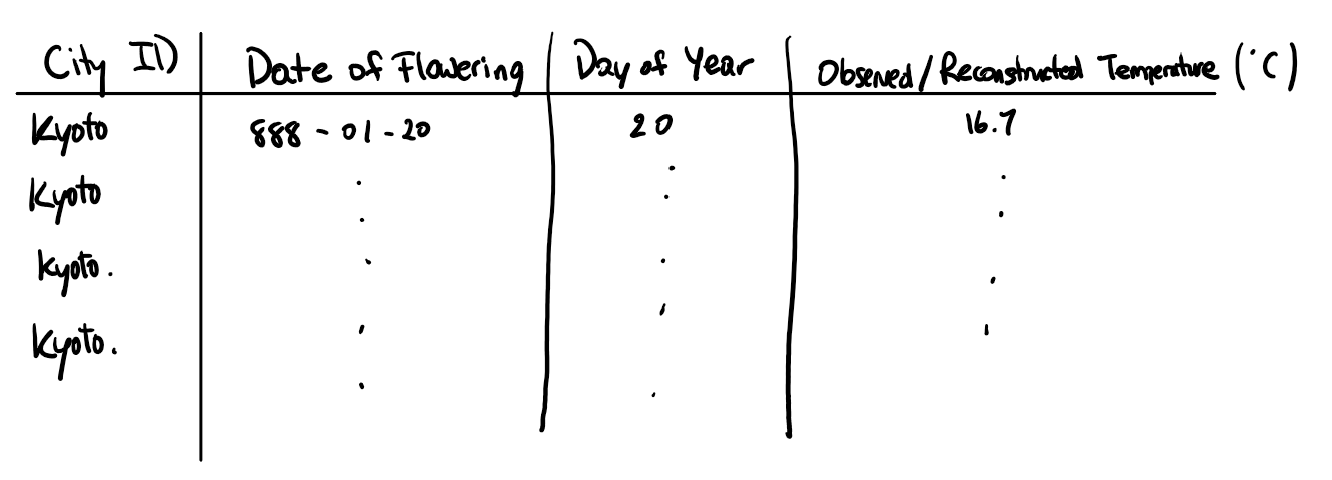 City ID Date of Flowering Day of Year Observed/Reconstructed Temperature (°C)
Kyoto 888-01-20 20 16.7
Kyoto
Kyoto.
Kyoto.